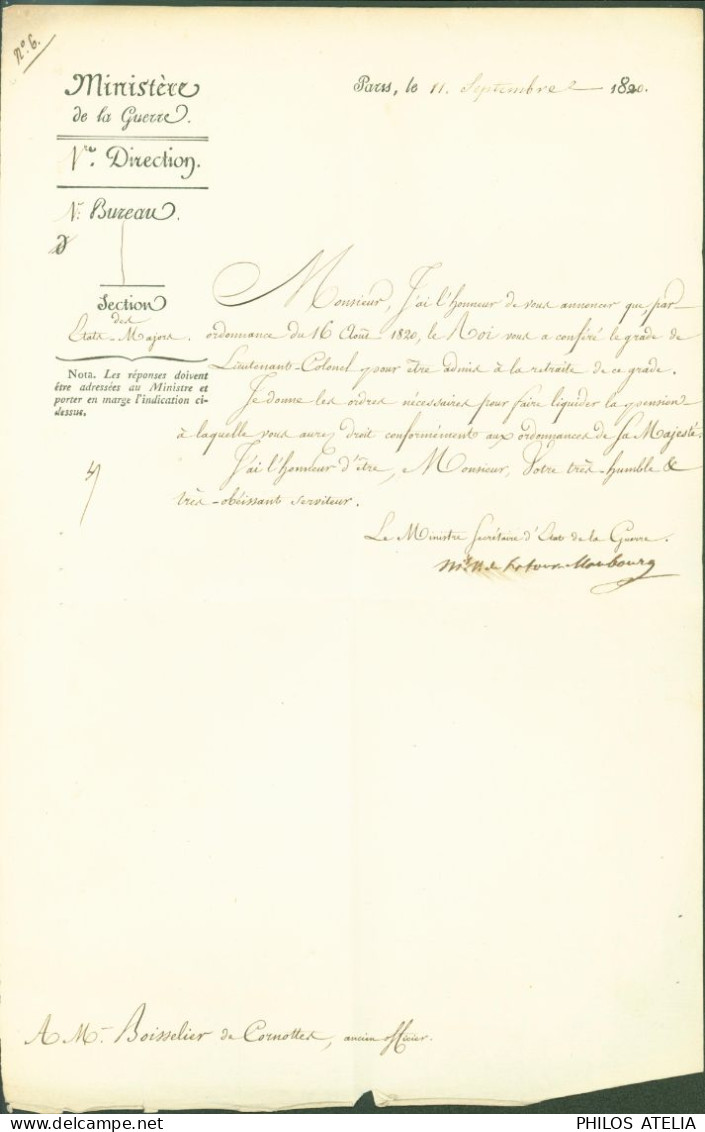 N.° 6.
Ministère
de la Guerre.
V.e Direction.
N.e Bureau.
Section
des
Etats-Majors.
Nota. Les réponses doivent
être adressées au Ministre et
porter en marge l'indication ci-
dessus.
Paris, le 11. Septembre 1820.
Monsieur, J'ai l'honneur de vous annoncer que, par
ordonnance du 16 Août 1820, le Roi vous a conféré le grade de
Lieutenant-Colonel pour être admis à la retraite de ce grade.
Je donne les ordres nécessaires pour faire liquider la pension
à laquelle vous aurez droit conformément aux ordonnances de Sa Majesté.
J'ai l'honneur d'être, Monsieur, Votre très-humble &
très-obéissant serviteur.
Le Ministre Secrétaire d'Etat de la Guerre.
de Latour-Maubourg
A M.r Boisselier de Cornottes, ancien officier.
PHILOS ATELIA